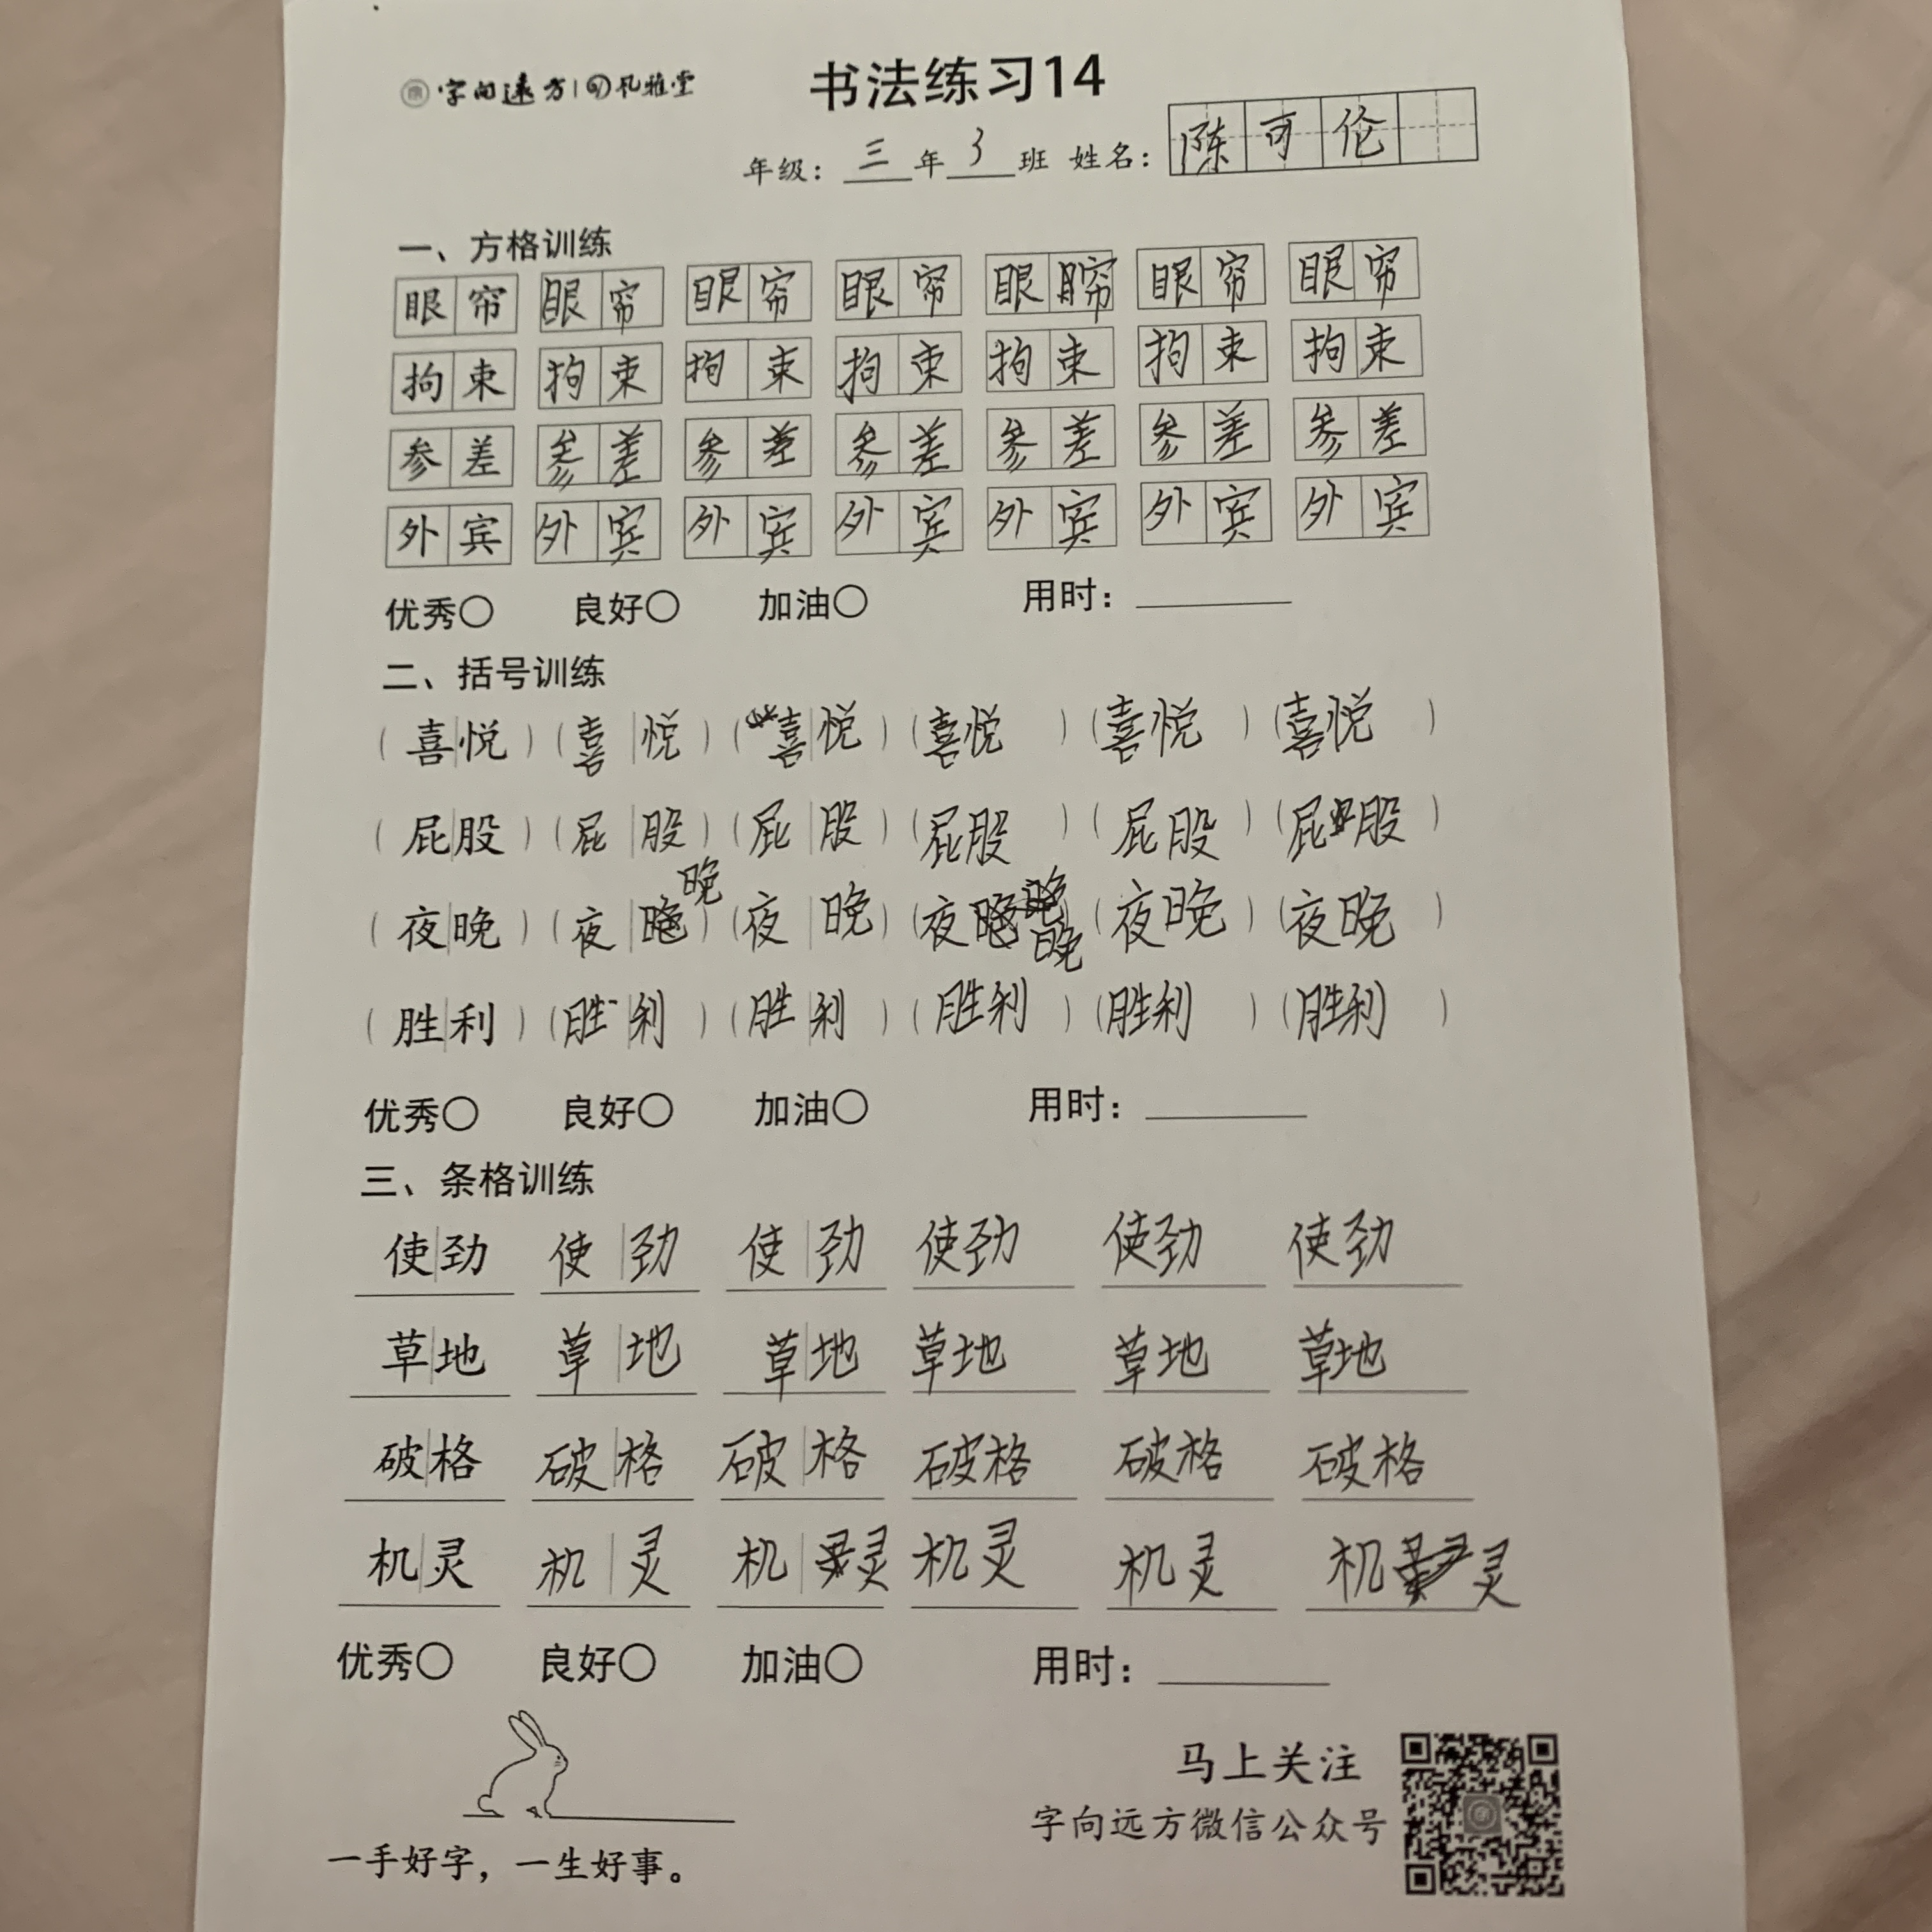 字向远方|孔雅堂
书法练习14
年级：三年3班 姓名：陈可伦
一、方格训练
眼帘 眼帘 眼帘 眼帘 眼 帘 眼帘 眼帘
拘束 拘束 拘束 拘束 拘束 拘束 拘束
参差 参差 参差 参差 参差 参差 参差
外宾 外宾 外宾 外宾 外宾 外宾 外宾
优秀○ 良好○ 加油○ 用时：
二、括号训练
（喜悦）（喜悦）（喜悦）（喜悦）（喜悦）（喜悦）
（屁股）（屁股）（屁股）（屁股）（屁股）（屁股）
（夜晚）（夜晚）（夜晚）（夜晚）（夜晚）（夜晚）
（胜利）（胜利）（胜利）（胜利）（胜利）（胜利）
优秀○ 良好○ 加油○ 用时：
三、条格训练
使劲 使劲 使劲 使劲 使劲 使劲
草地 草地 草地 草地 草地 草地
破格 破格 破格 破格 破格 破格
机灵 机灵 机灵 机灵 机灵 机灵
优秀○ 良好○ 加油○ 用时：
马上关注
字向远方微信公众号
一手好字，一生好事。